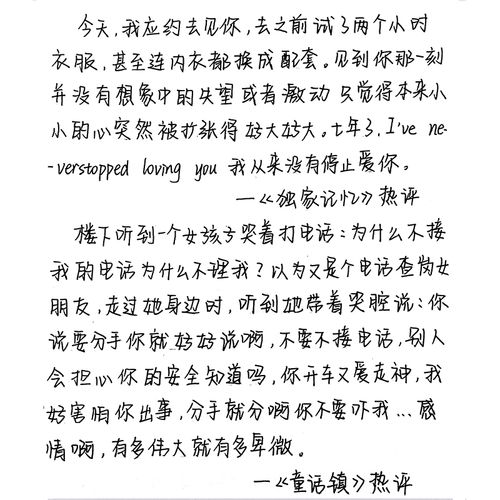 今天,我应约去见你,去之前试了两个小时
衣服,甚至连内衣都换成配套。见到你那一刻
并没有想象中的失望或者激动 只觉得本来小
小的心突然被扩张得好大好大。七年了, I've ne-
verstopped loving you 我从来没有停止爱你。
—《独家记忆》热评
楼下听到一个女孩子哭着打电话:为什么不接
我的电话为什么不理我?以为又是个电话查岗女
朋友,走过她身边时,听到她带着哭腔说:你
说要分手你就好好说啊,不要不接电话,别人
会担心你的安全知道吗,你开车又爱走神,我
好害怕你出事,分手就分啊你不要吓我...感
情啊,有多伟大就有多卑微。
—《童话镇》热评